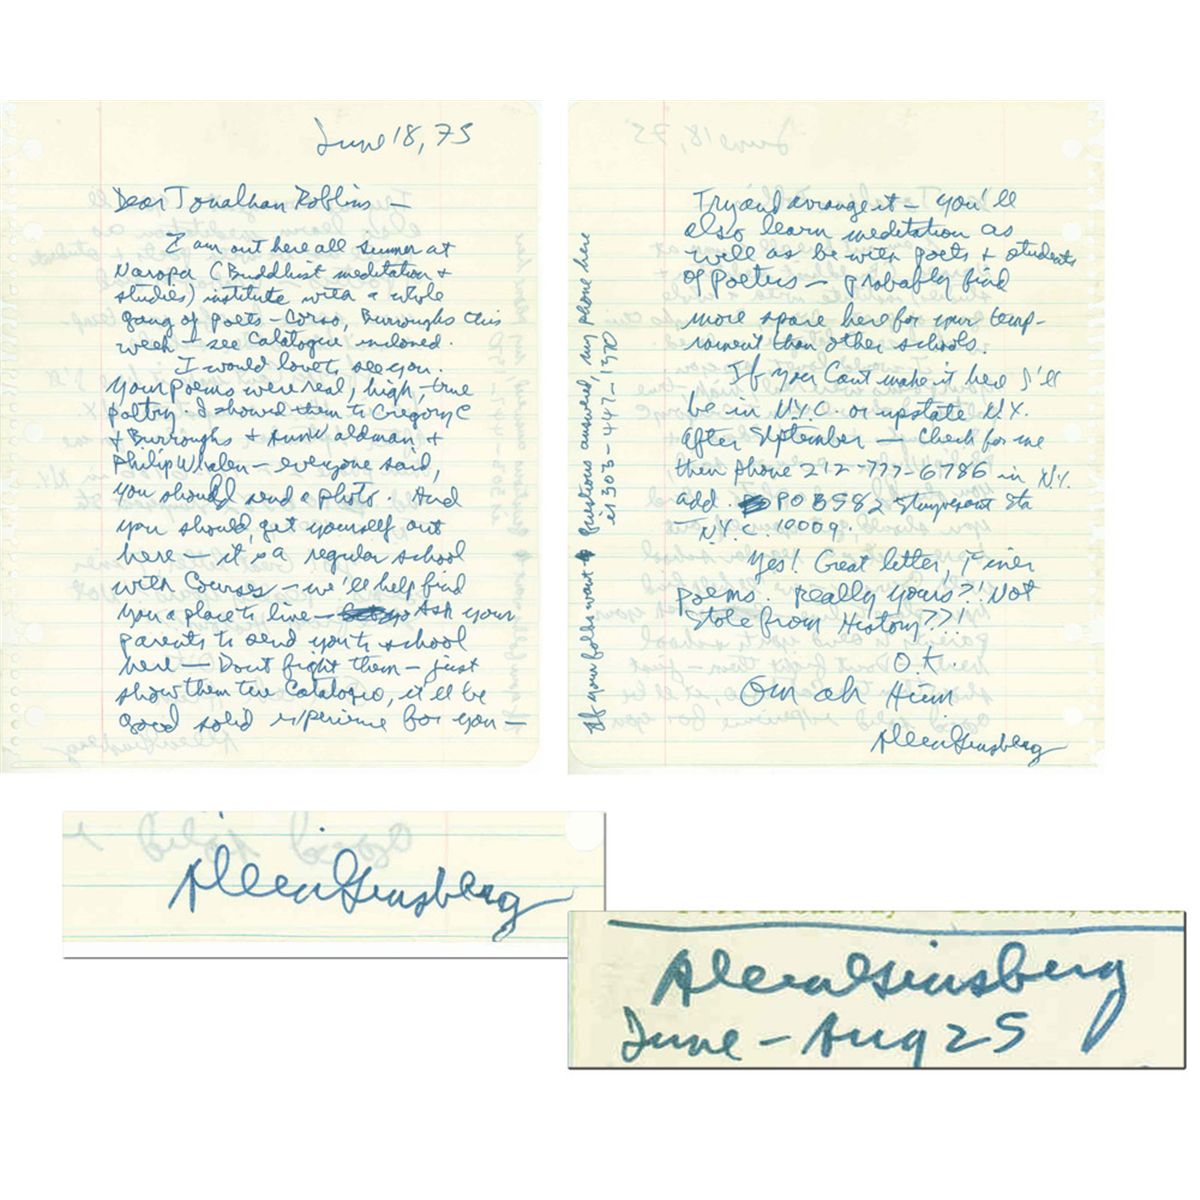 June 18, 75
Dear Jonathan Robbins —
I am out here all summer at
Naropa (Buddhist meditation +
studies) institute with a whole
gang of poets — Corso, Burroughs this
week — see Catalogue inclosed.
I would love to see you.
Your poems were real, high, true
poetry. I showed them to Gregory C
+ Burroughs + Ann Waldman +
Philip Whalen — everyone said,
you should send a photo. And
you should get yourself out
here — it is a regular school
with Courses — we'll help find
you a place to live — Ask your
parents to send you to school
here — Don't fight them — just
show them the Catalogue, it'll be
good solid experience for you —
Try and arrange it — you'll
also learn meditation as
well as be with poets + students
of poeters — probably find
more space here for your temp-
rament than other schools.
If you Can't make it here I'll
be in N.Y.C. or upstate N.Y.
after September — Check for me
then phone 212-777-6786 in N.Y.
add. PO B582 Stuyvesant Sta
N.Y.C. 10009.
Yes! Great letter, Finer
poems. Really yours?! Not
Stole from History??!
O.K.
Om ah Hum
Allen Ginsberg
If your folks want questions answered, my phone here
is 303-447-1370
Allen Ginsberg
Allen Ginsberg
June - Aug 25